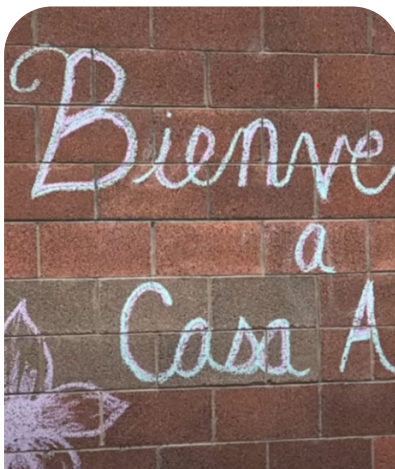 Bienve
a
Casa A